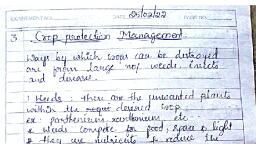 DATE 25/02/22
3 Crop protection Management.
Ways by which crops can be destroyed
are from large no. of weeds, insects
and disease.
1 Weeds : these are the unwanted plants
within the desired crop.
ex: parthenium, xanthium, etc.
* weeds compete for food, space & light
* they use nutrients & reduce the